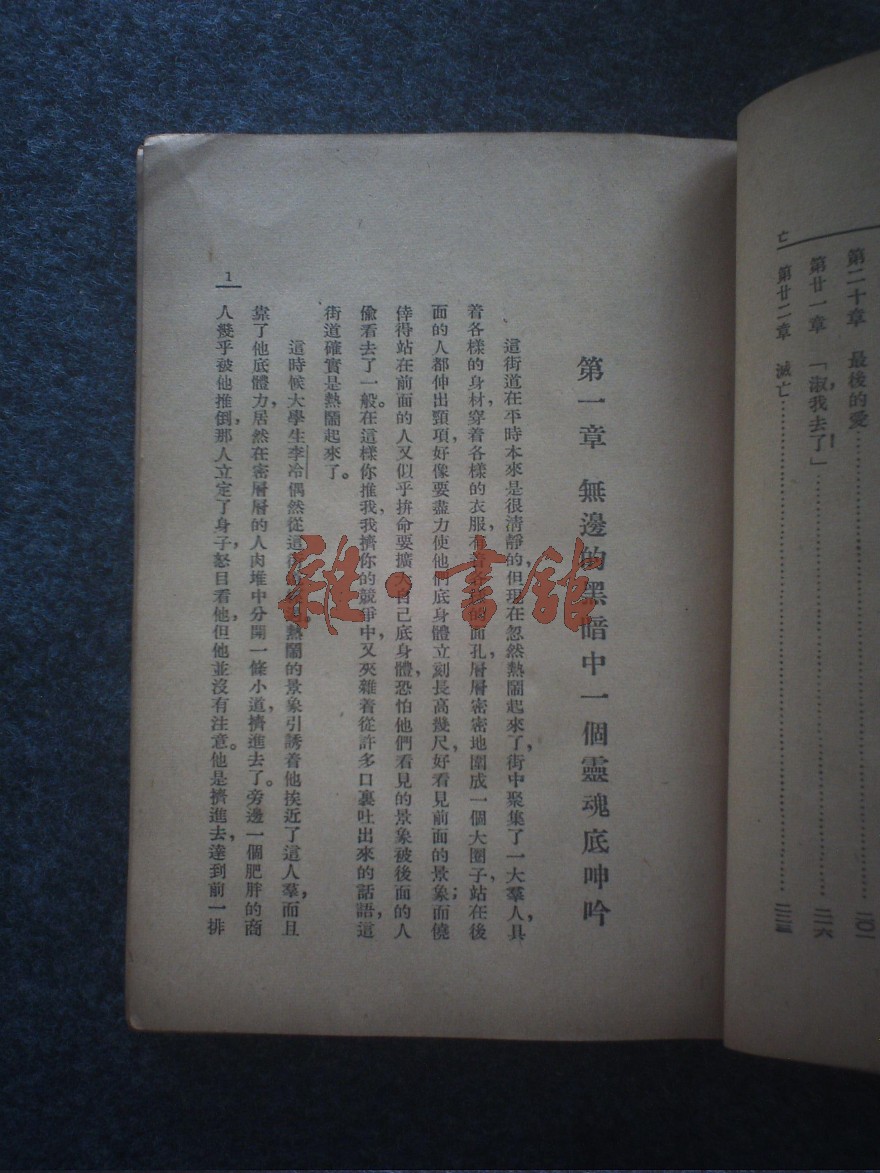 亡
第二十章　最後的愛……二〇一
第廿一章　「淑，我去了」……二一六
第廿二章　滅亡……
第一章　無邊的黑暗中一個靈魂底呻吟
這街道在平時本來是很清靜的，但現在忽然熱鬧起來了，街中聚集了一大羣人，具
着各樣的身材，穿着各樣的衣服，有着各樣的面孔，層層密密地圍成一個大圈子，站在後
面的人都伸出頸項，好像要盡力使他們底身體立刻長高幾尺，好看見前面的景象；而僥
倖得站在前面的人又似乎拚命要擴大自己底身體，恐怕他們看見的景象被後面的人
偷看去了一般。在這樣你推我，我擠你的競爭中，又夾雜着從許多口裏吐出來的話語，這
街道確實是熱鬧起來了。
這時候大學生李冷偶然從這街。熱鬧的景象引誘着他挨近了這人羣，而且
靠了他底體力，居然在密層層的人肉堆中分開一條小道，擠進去了。旁邊一個肥胖的商
人幾乎被他推倒，那人立定了身子，怒目看他，但他並沒有注意。他是擠進去，達到前一排
1
雜·書館